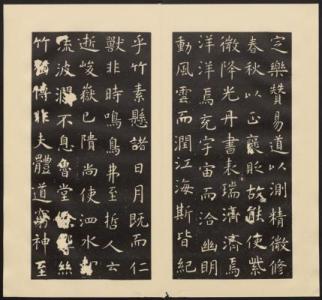 定樂贊易道以測精微修
春秋以正褒貶故能使紫
微降光丹書表瑞濟濟焉
洋洋焉充宇宙而洽幽明
動風雲而潤江海斯皆紀
乎竹素懸諸日月既而仁
獸非時鳴鳥弗至哲人云
逝峻嶽已隤尚使泗水
流波瀾不息魯堂餘絲
竹傳非夫體道窮神至